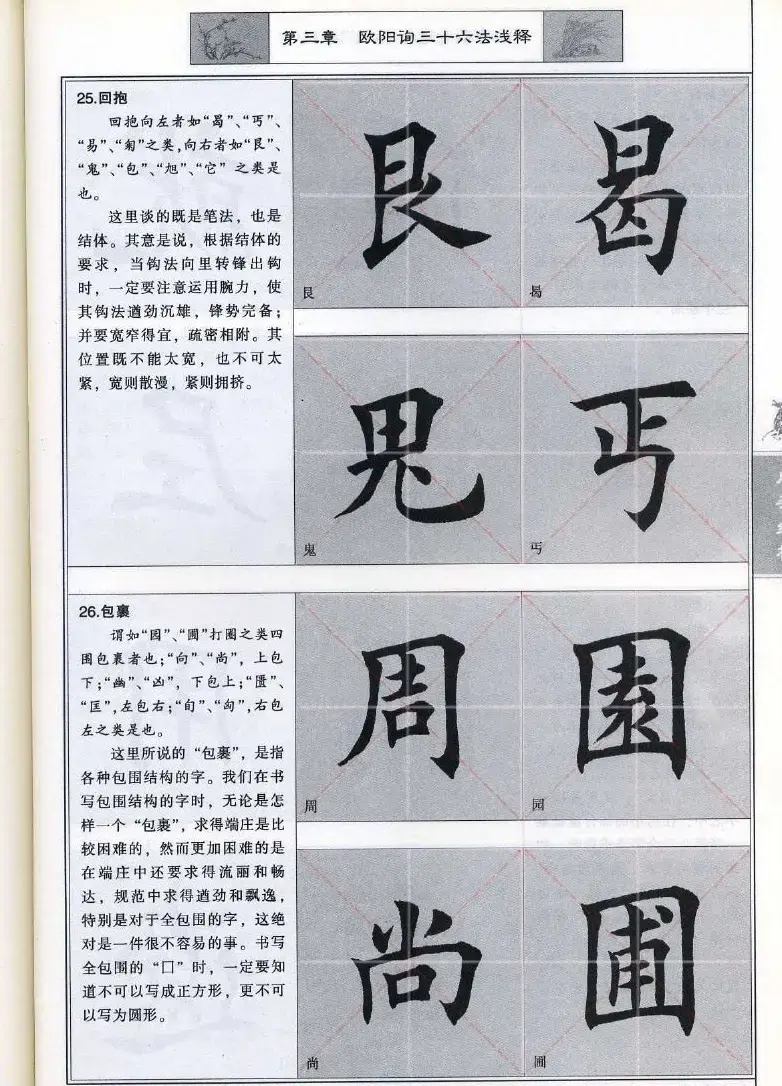 第三章 欧阳询三十六法浅释
25.回抱
回抱向左者如“曷”、“丐”、
“易”、“匊”之类,向右者如“艮”、
“鬼”、“包”、“旭”、“它”之类是
也。
这里谈的既是笔法，也是
结体。其意是说，根据结体的
要求，当钩法向里转锋出钩
时，一定要注意运用腕力，使
其钩法遒劲沉雄，锋势完备；
并要宽窄得宜，疏密相附。其
位置既不能太宽，也不可太
紧，宽则散漫，紧则拥挤。
艮
曷
艮
曷
鬼
丐
鬼
丐
26.包裹
谓如“园”、“圃”打圈之类四
围包裹者也；“向”、“尚”，上包
下；“幽”、“凶”，下包上；“匮”、
“匡”，左包右；“旬”、“匈”，右包
左之类是也。
这里所说的“包裹”，是指
各种包围结构的字。我们在书
写包围结构的字时，无论是怎
样一个“包裹”，求得端庄是比
较困难的，然而更加困难的是
在端庄中还要求得流丽和畅
达，规范中求得遒劲和飘逸，
特别是对于全包围的字，这绝
对是一件很不容易的事。书写
全包围的“囗”时，一定要知
道不可以写成正方形，更不可
以写为圆形。
周
園
周
园
尚
圃
尚
圃